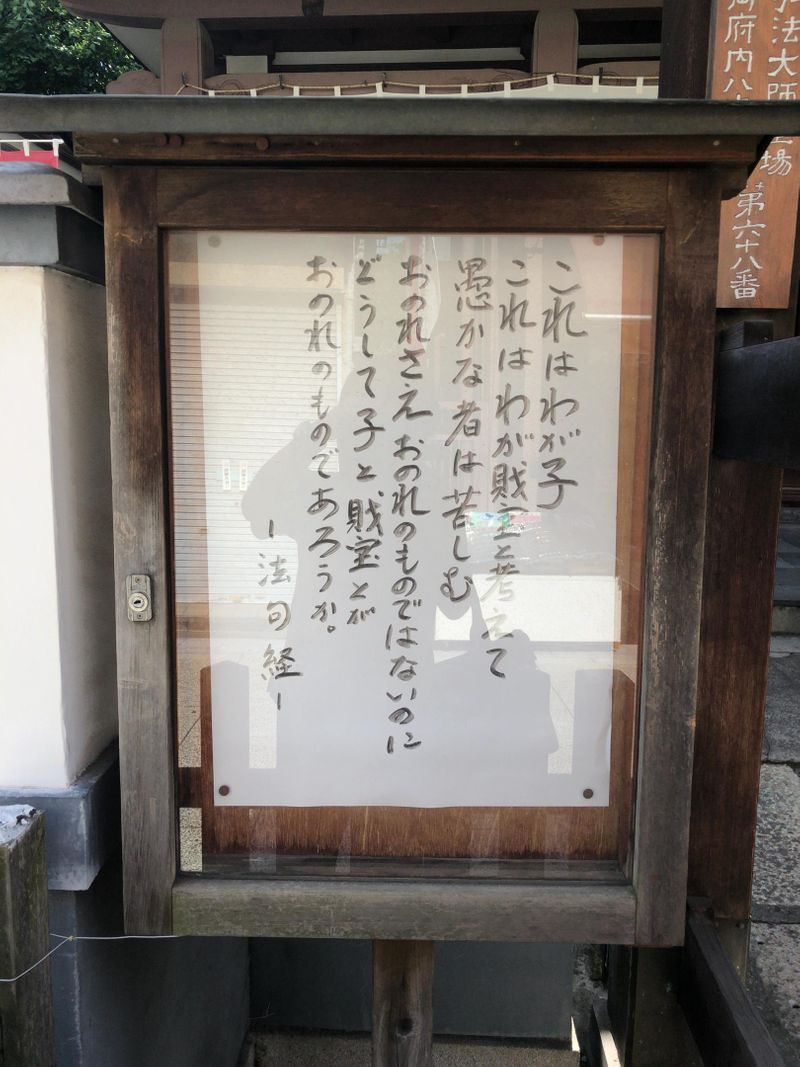 これはわが子
これはわが財宝と考えて
愚かな者は苦しむ
おのれさえおのれのものではないのに
どうして子と財宝とが
おのれのものであろうか。
ー法句経ー
弘法大師 場
御府内八 第六十八番